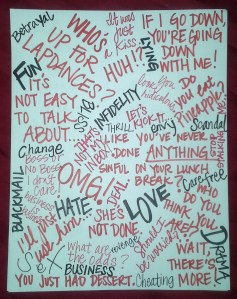 Betrayal
WHO'S
UP FOR
LAPDANCES?
It was
just
a
kiss
HUH!?
LYING
IF I GO DOWN,
YOU'RE GOING
DOWN
WITH ME!
FUN
IT'S
NOT EASY
TO TALK
ABOUT...
BOSS
INFIDELITY
THRILL
envy
Scandal
Change
LIKE YOU'VE NEVER
DONE
ANYTHING
SINFUL
ON YOUR LUNCH
BREAK?
Carefree
BLACKMAIL
OMG!!
DEAL
HATE...
SHE'S
NOT DONE.
LOVE
WHO
DO
YOU
THINK
YOU
ARE?
I'll
just
him
What are
the odds?
revenge
Should
I
be
worried?
DRAMA
SEX
BUSINESS
WAIT,
THERE'S
MORE!
YOU JUST HAD DESSERT.
Cheating